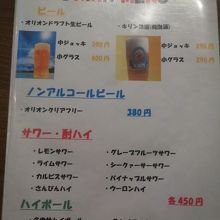 ビール
・オリオンドラフト生ビール
中ジョッキ
小グラス
・キリン
中ジョッキ
小グラス
ノンアルコールビール
・オリオンクリアフリー 380円
サワー・酎ハイ
・レモンサワー ・グレープフルーツサワー
・ライムサワー ・シークァーサーサワー
・カルピスサワー ・パイナップルサワー
・さんぴんハイ ・ウーロンハイ
各450円
ハイボール